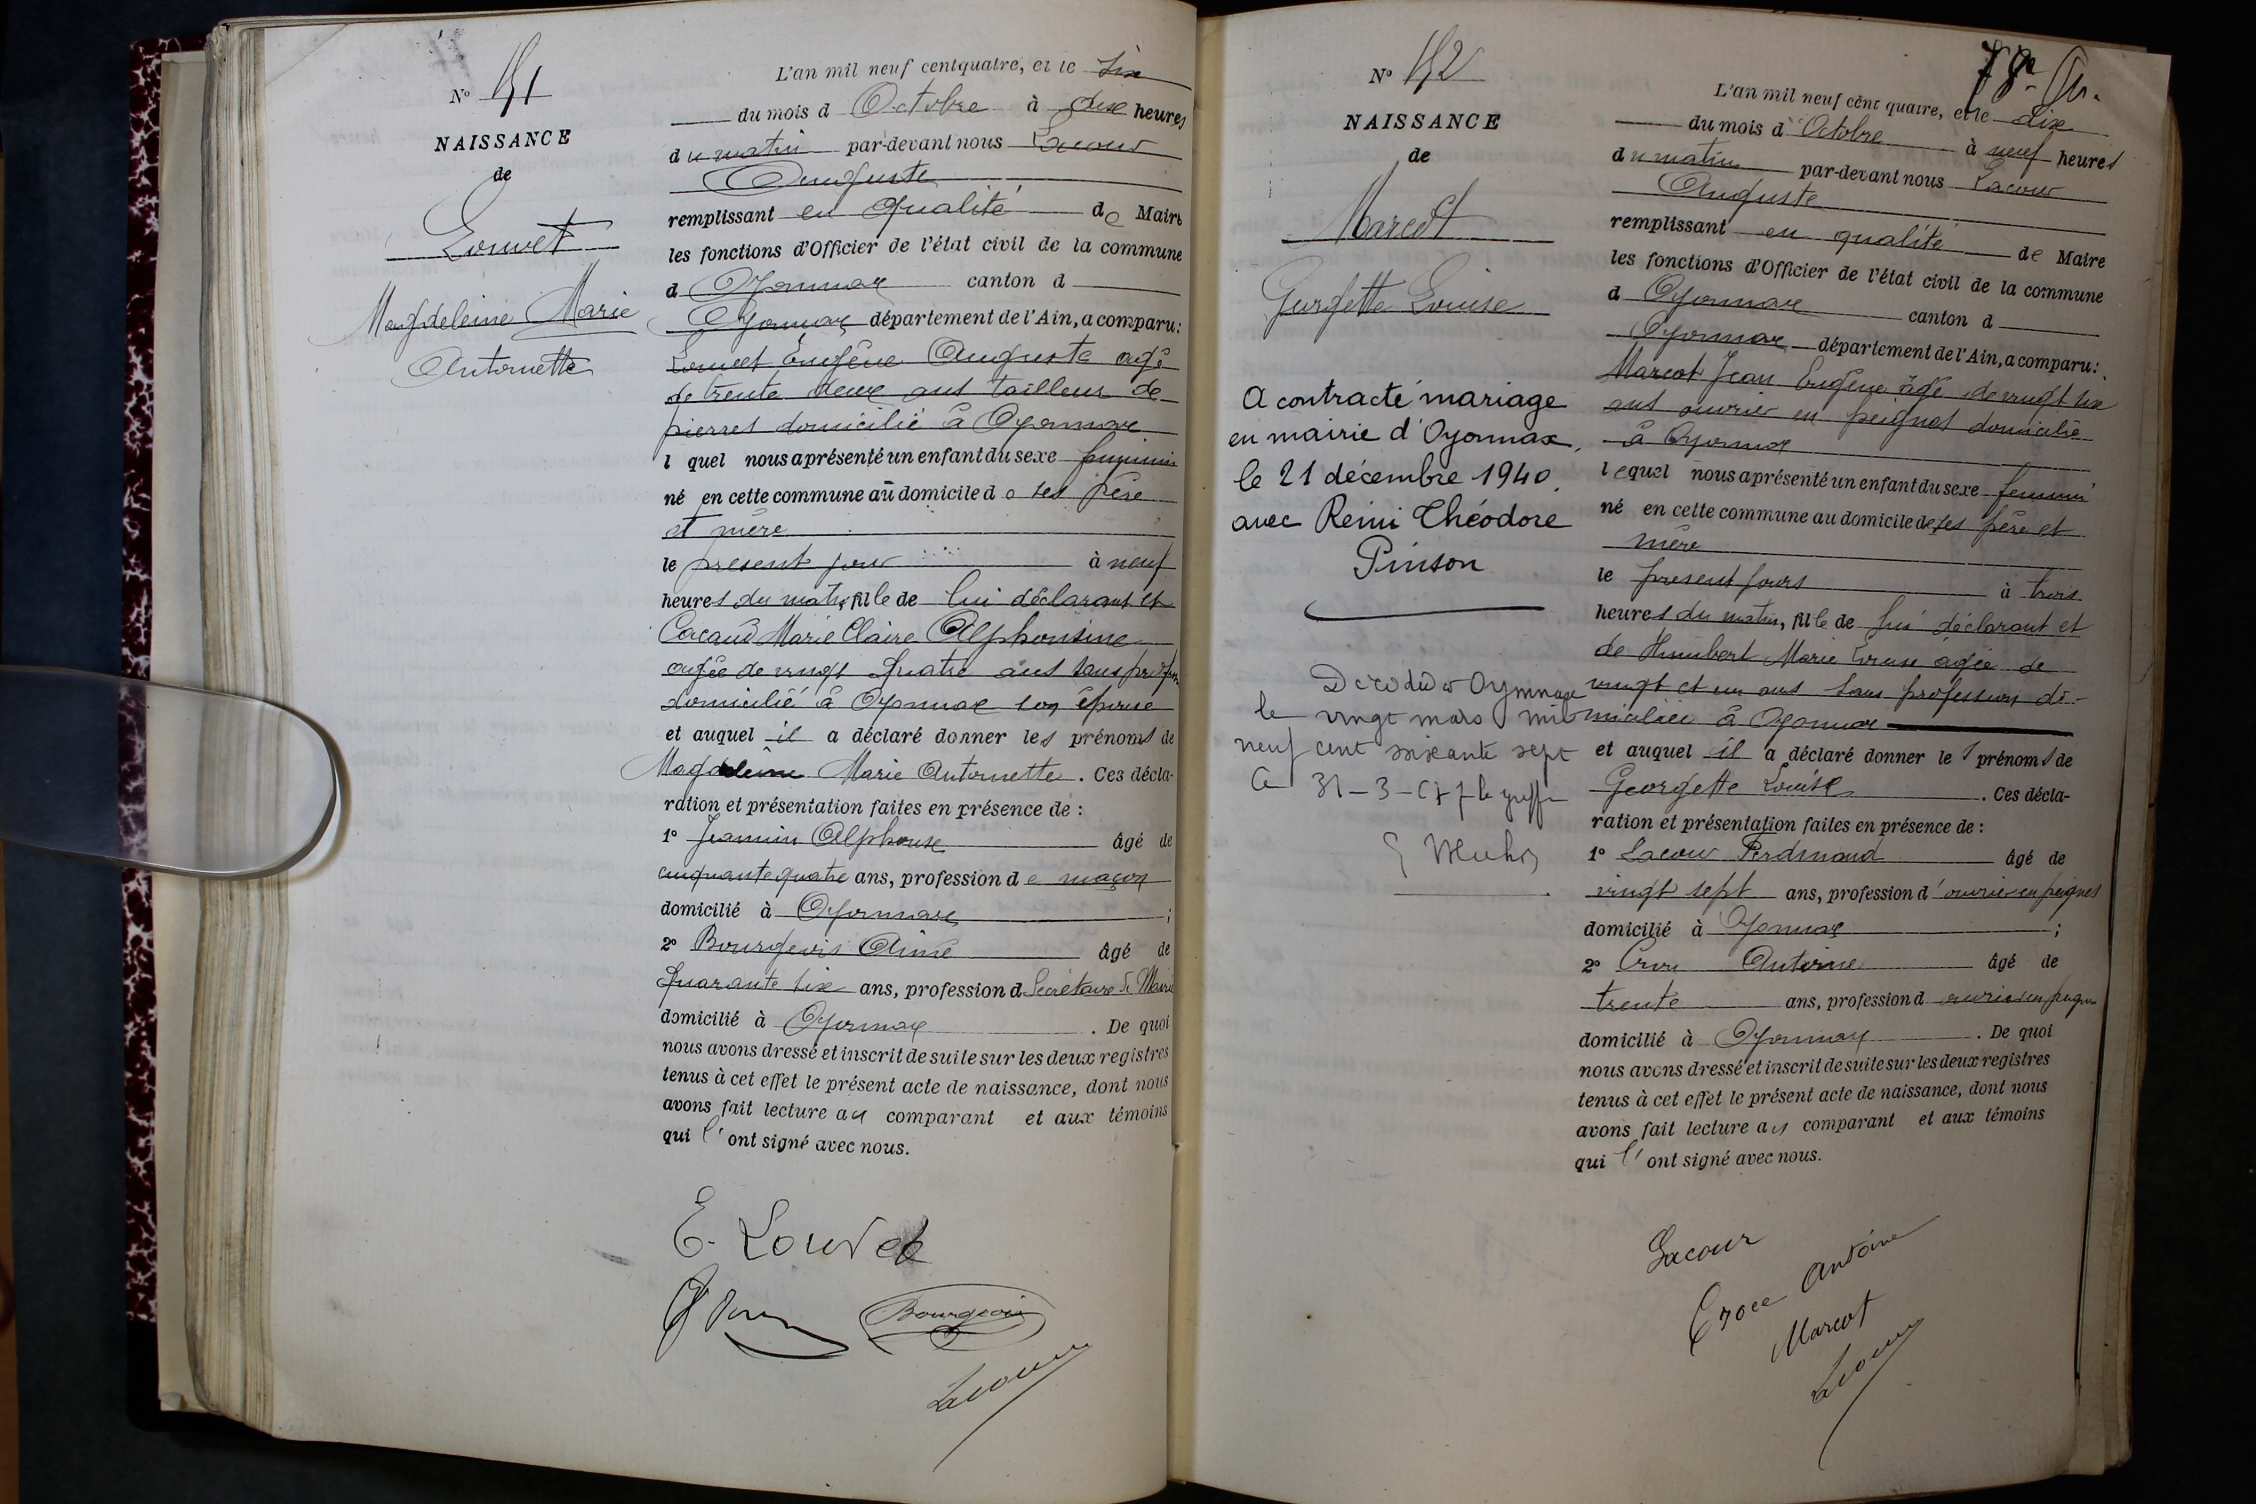 N° 151
NAISSANCE
de
Louvet
Magdeleine Marie
Antoinette
L'an mil neuf cent quatre, et le six
du mois d Octobre à dix heures
du matin par-devant nous Lacour
Auguste
remplissant en qualité de Maire
les fonctions d'Officier de l'état civil de la commune
d Oyonnax canton d
Oyonnax département de l'Ain, a comparu:
Louvet Eugène Auguste agé
de trente deux ans tailleur de
pierres domicilié à Oyonnax
l quel nous a présenté un enfant du sexe feminin
né en cette commune au domicile de ses père
et mère
le present jour à neuf
heures du matin, fille de lui déclarant et
Marie Claire Alphonsine
agée de vingt quatre ans sans profession
domicilié à Oyonnax son épouse
et auquel il a déclaré donner les prénoms de
Magdeleine Marie Antoinette. Ces décla-
ration et présentation faites en présence de :
1° Jeannin Alphonse âgé de
cinquante quatre ans, profession de maçon
domicilié à Oyonnax ;
2° Bourgeois Aimé âgé de
quarante six ans, profession d Secrétaire de Mairie
domicilié à Oyonnax. De quoi
nous avons dressé et inscrit de suite sur les deux registres
tenus à cet effet le présent acte de naissance, dont nous
avons fait lecture au comparant et aux témoins
qui l'ont signé avec nous.
E. Louvet
Bourgeois
Lacour
78
N° 152
NAISSANCE
de
Marcot
Georgette Louise
A contracté mariage
en mairie d'Oyonnax,
le 21 décembre 1940.
avec Rémi Théodore
Pinson
Décédée à Oyonnax
le vingt mars mil
neuf cent soixante sept
le greffier
L'an mil neuf cent quatre, et le dix
du mois d'Octobre à neuf heures
du matin par-devant nous Lacour
Auguste
remplissant en qualité de Maire
les fonctions d'Officier de l'état civil de la commune
d Oyonnax canton d
Oyonnax département de l'Ain, a comparu:
Marcot Jean Eugène âgé de vingt six
ans ouvrier en peignes domicilié
à Oyonnax
lequel nous a présenté un enfant du sexe feminin
né en cette commune au domicile de ses père et
mère
le present jours à trois
heures du matin, fille de lui déclarant et
de Humbert Marie Louise agée de
vingt et un ans sans profession do-
miciliée à Oyonnax
et auquel il a déclaré donner les prénoms de
Georgette Louise. Ces décla-
ration et présentation faites en présence de :
1° Lacour Ferdinand âgé de
vingt sept ans, profession d'ouvrier en peignes
domicilié à Oyonnax ;
2° Antoine âgé de
trente ans, profession d ouvrier en peignes
domicilié à Oyonnax. De quoi
nous avons dressé et inscrit de suite sur les deux registres
tenus à cet effet le présent acte de naissance, dont nous
avons fait lecture au comparant et aux témoins
qui l'ont signé avec nous.
Lacour
Croce Antoine
Marcot
Lacour